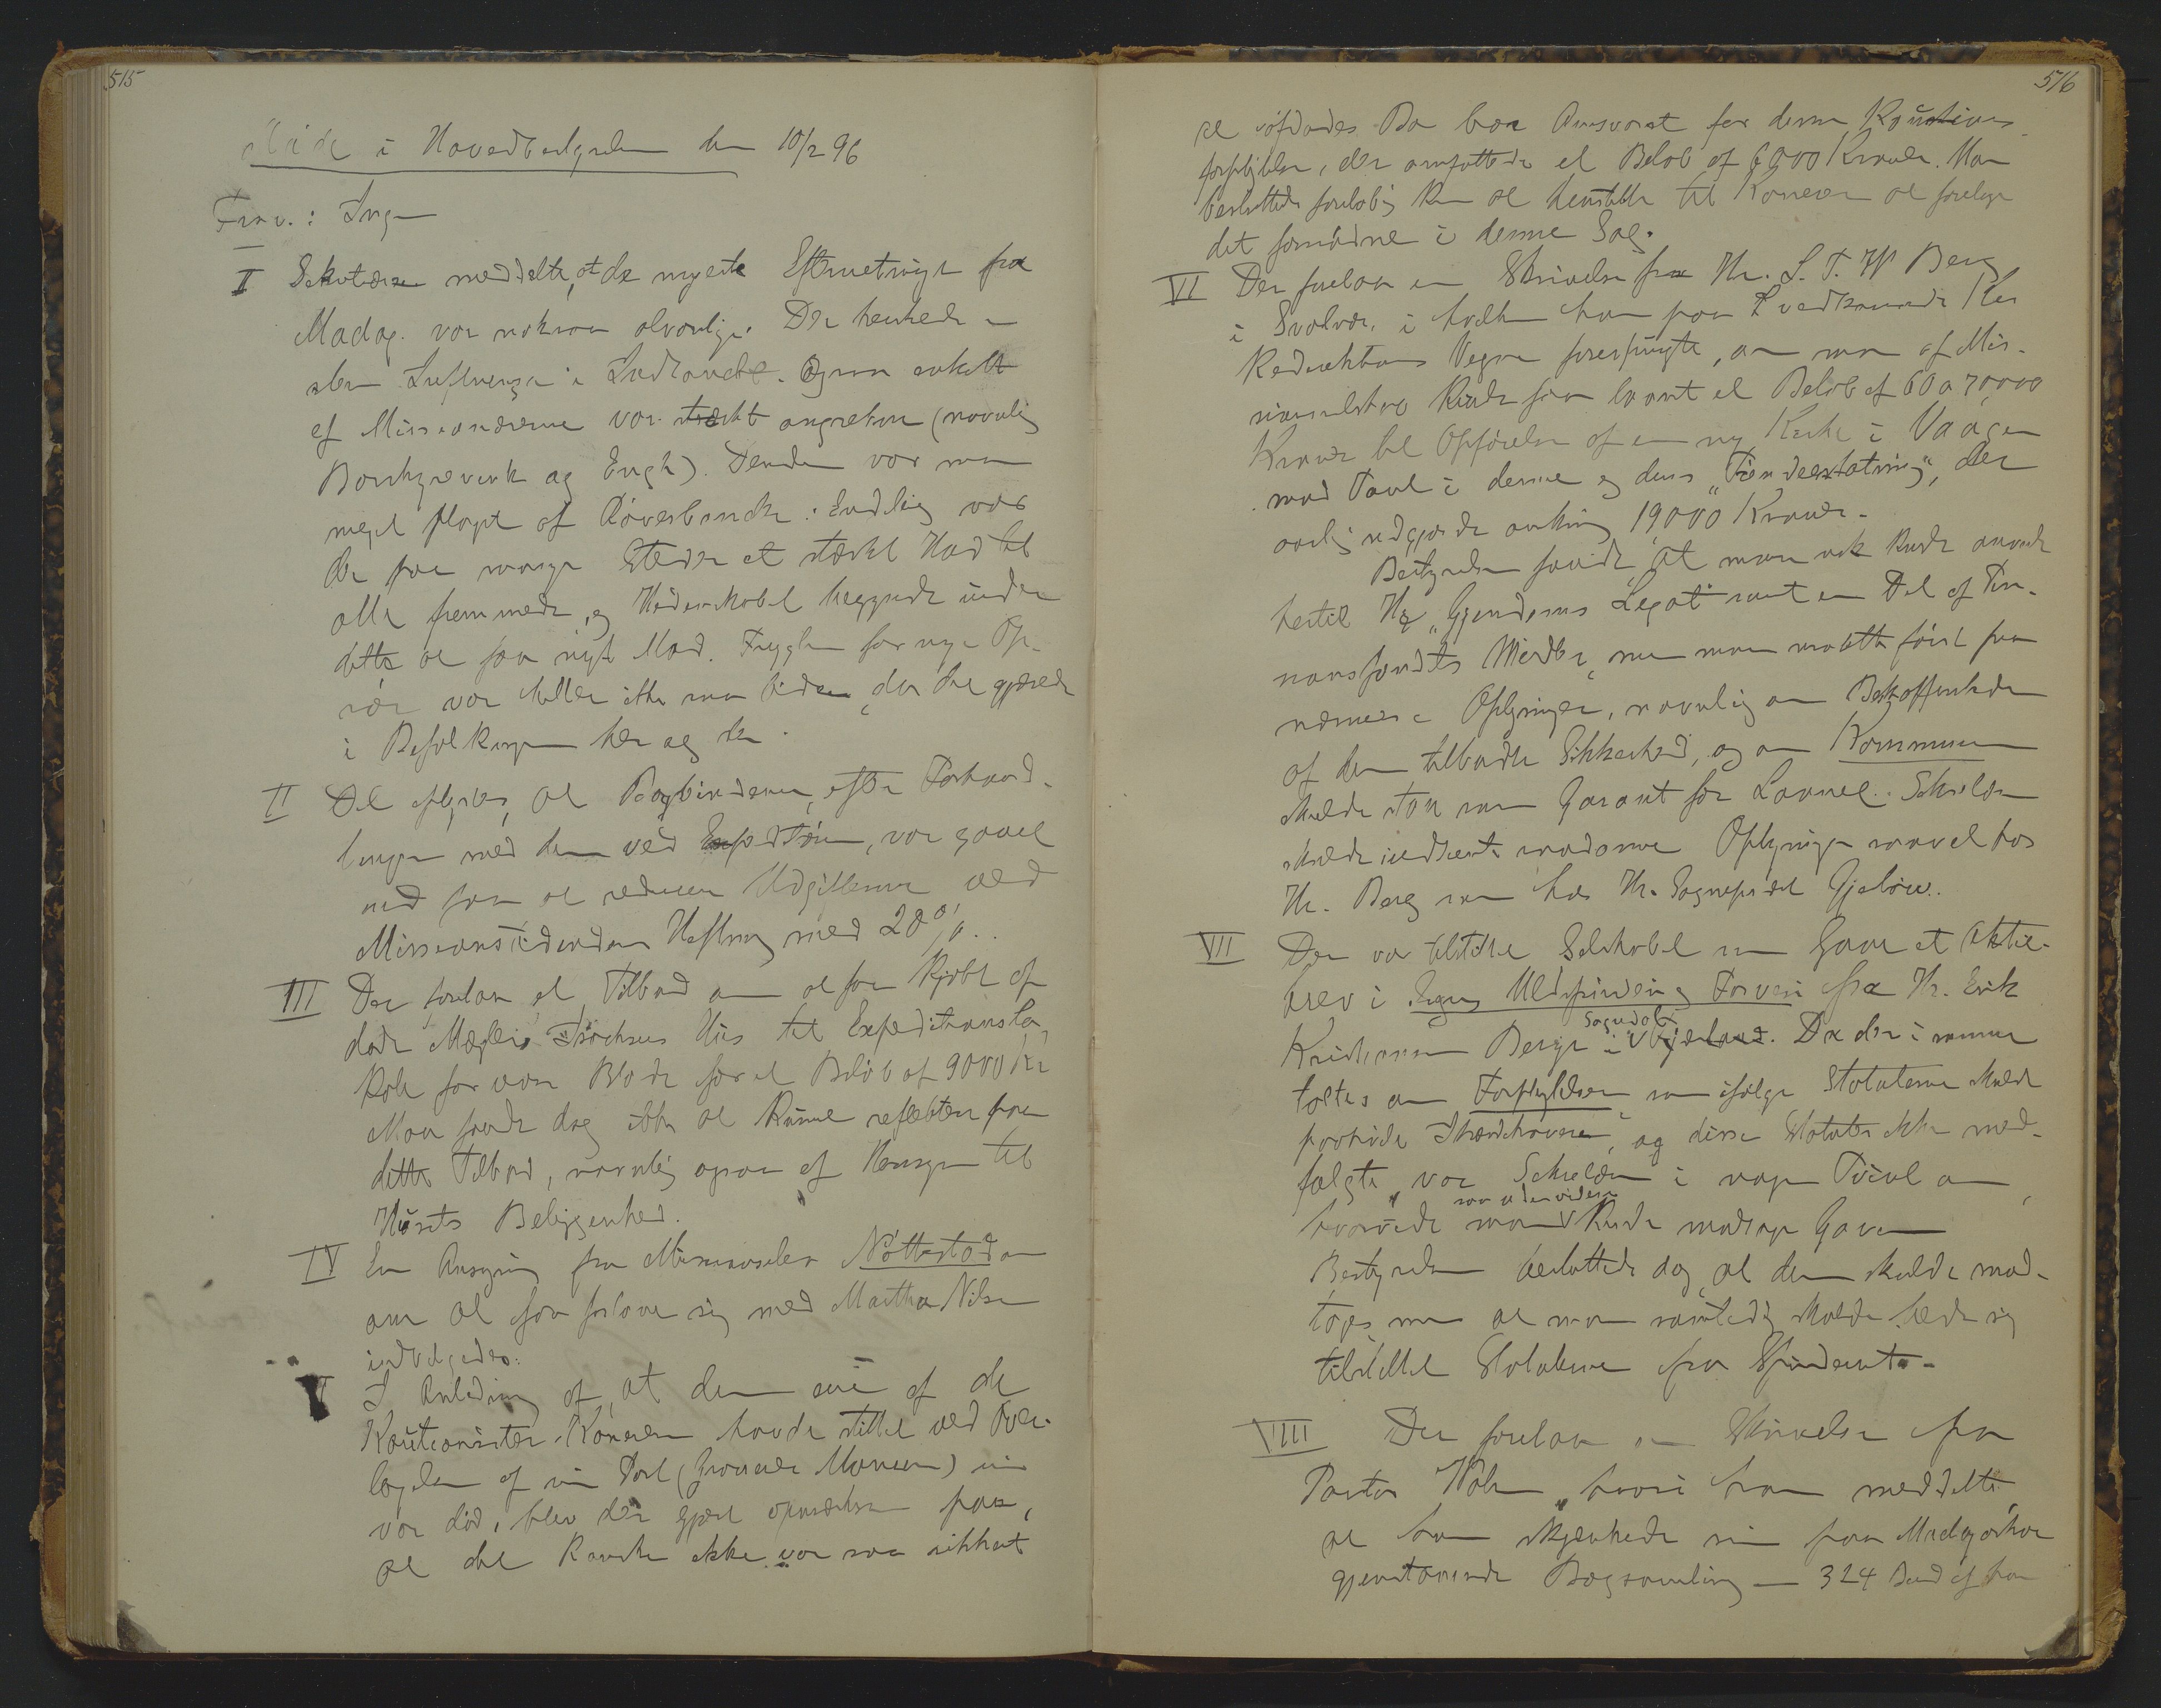 515
Møde i Hovedbestyrelsen den 10/2 96
Frav.: Ingen
I Sekretæren meddelte, at de nyeste Efterretninger fra
Madag. var noksaa alvorlige. Der herskede en
slem Influenza i Indlandet. Ogsaa enkelte
af Missionærerne var stærkt angrebne (navnlig
Borchgrevink og Engh). Desuden var man
meget plaget af Røverbander. Endelig var
der paa mange Steder et stærkt Had til
alle fremmede, og Hedenskabet begyndte under
dette at faa nyt Mod. Frygten for nye Op-
rør var heller ikke saa liden, da det gjærede
i Befolkningen her og der.
II Det oplystes, at Bogbinderne, efter Forhand-
linger med dem ved Expeditøren, var gaaet
ind paa at reducere Udgifterne ved
Missionstidendens Heftning med 20%.
III Der forelaa et Tilbud om at faa kjøbt af
døde Mægler Isachsens Hus til Expeditionslo-
kale for vore Blade for et Beløb af 9000 Kr
Man fandt dog ikke at kunne reflektere paa
dette Tilbud, navnlig ogsaa af Hensyn til
Husets Beliggenhed.
IV En Ansøgning fra Missionselev Nøttestad om
om at faa forlove sig med Martha Nilsen
indvilgedes.
V I Anledning af, at den ene af de
Kautionister Kasereren havde stillet ved Over-
tagelsen af sin Post (Grosserer Monsen) nu
var død, blev der gjort opmærksom paa,
at det kanske ikke var saa sikkert
516
at afdødes Bo bær Ansvaret for denne Kautions
forpligtelse, der omfattede et Beløb af 6000 Kroner. Man
besluttede foreløbig kun at henstille til Kasereren at forelægge
det fornødne i denne Sag.
VI Der forelaa en Skrivelse fra Hr. L. T. W Berg
i Svolvær, i hvilken han paa vedkommende
Vegne forespurgte, om man af Mis-
sionsselskab kunde faa laant et Beløb af 60 a 70,000
Kroner til Opførelse af en ny Kirke i Vaagan
mod Pant i denne og dens „Tiendeerstatning", der
aarlig udgjorde omkring 19,000 Kroner.
Bestyrelsen fandt, at man nok kunde anvende
hertil Legat samt en Del af Pen-
sionsfondets Midler, men man maatte først faa
nærmere Oplysninger, navnlig om Beskaffenheden
af den tilbudte Sikkerhed, og om Kommunen
skulde staa som Garant for Laanet. Sekretæren
skulde indhente saadanne Oplysninger saavel hos
Hr. Berg som hos Hr. Sogneprest Gjeløw.
VII Der var tilstillet Selskabet som Gave et Aktie-
brev i Uldspinderi og Farveri fra Hr. Erik
Kristensen Berge i Sogndal. Da der i samme
taltes om Forpligtelser, som ifølge Statuterne skulde
paahvile Ihændehaveren, og disse Statuter ikke med-
fulgte, var Sekretæren i nogen Tvivl om,
hvorvidt man saa uden videre kunde modtage Gaven
Bestyrelsen besluttede dog, at den skulde mod-
tages, men at man samtidig skulde bede sig
tilstillet Statuterne fra Spinderiet.
VIII Der forelaa en Skrivelse fra
Pastor Walen, hvori han meddelte,
at han skjænkede sin paa Madagaskar
gjenstaaende Bogsamling — 324 Bind af han